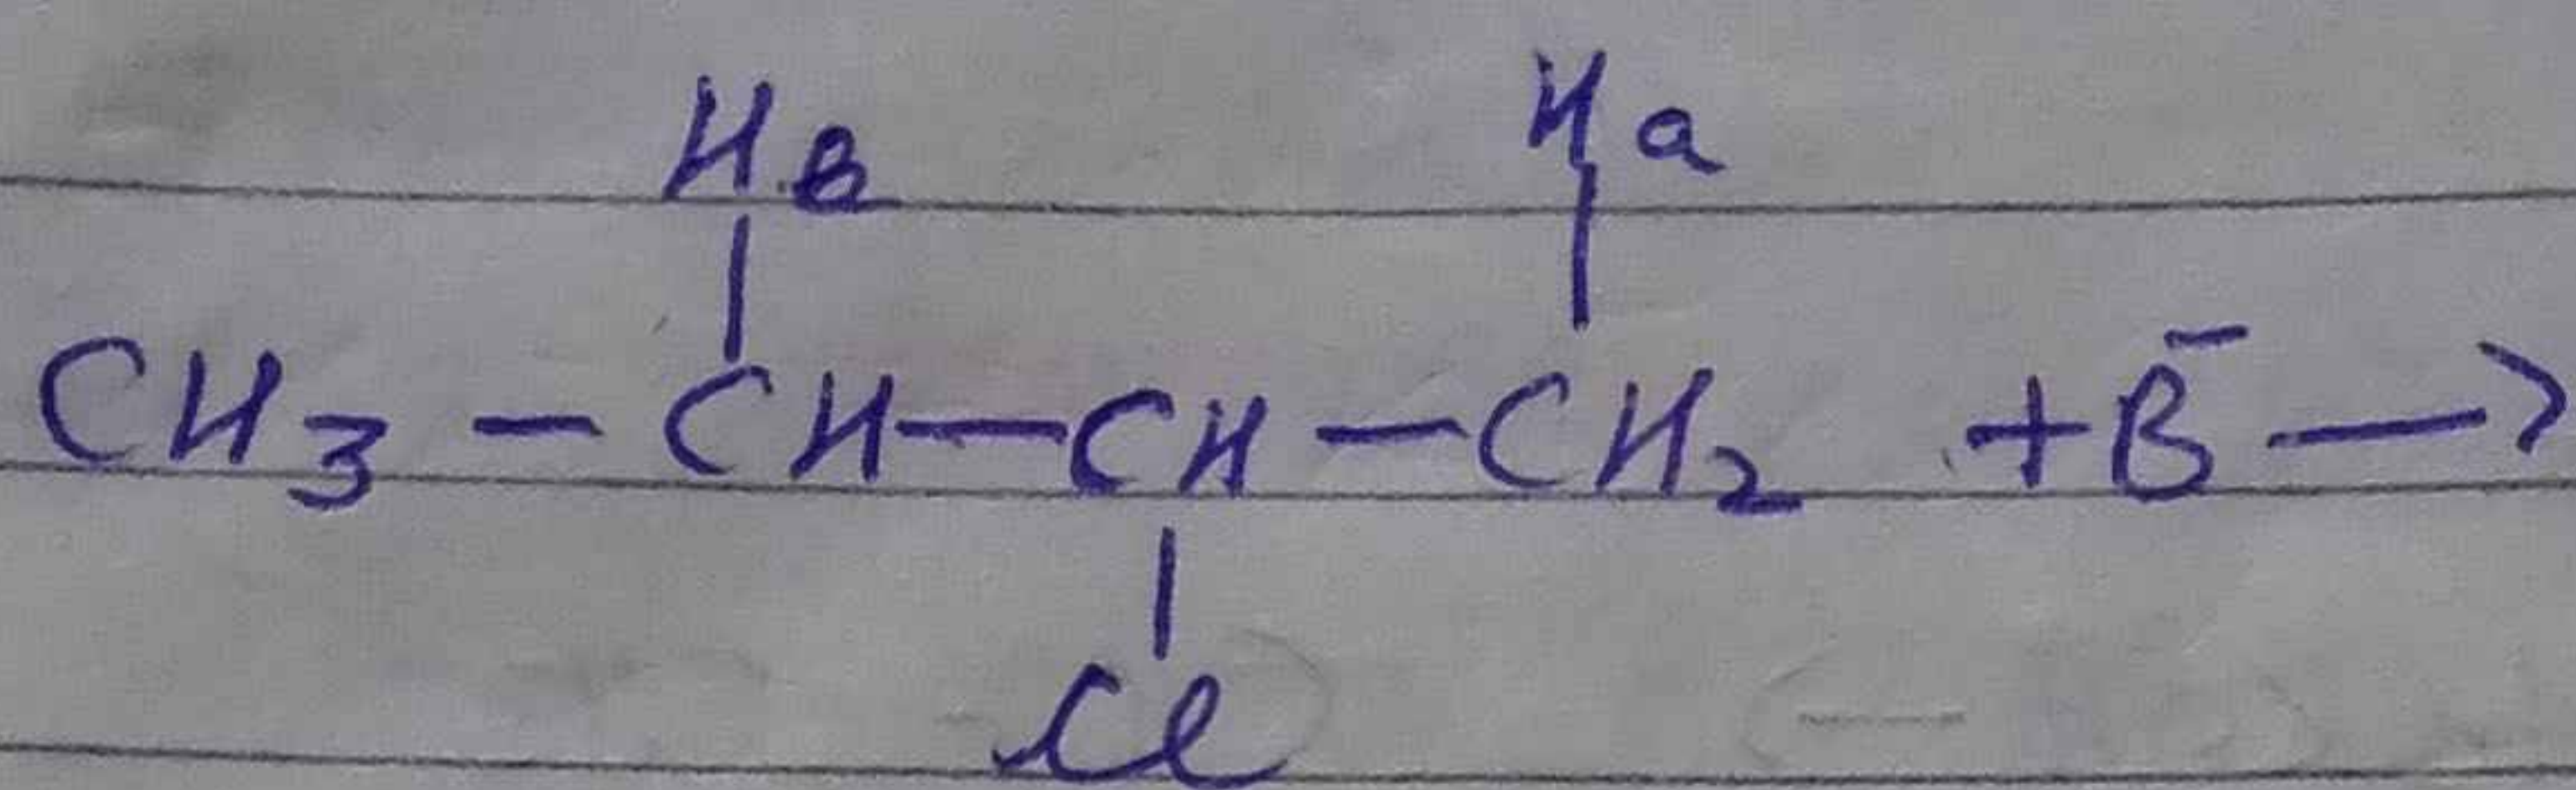 H b H a
CH3 - CH - CH - CH2 + B̄ →
Cl